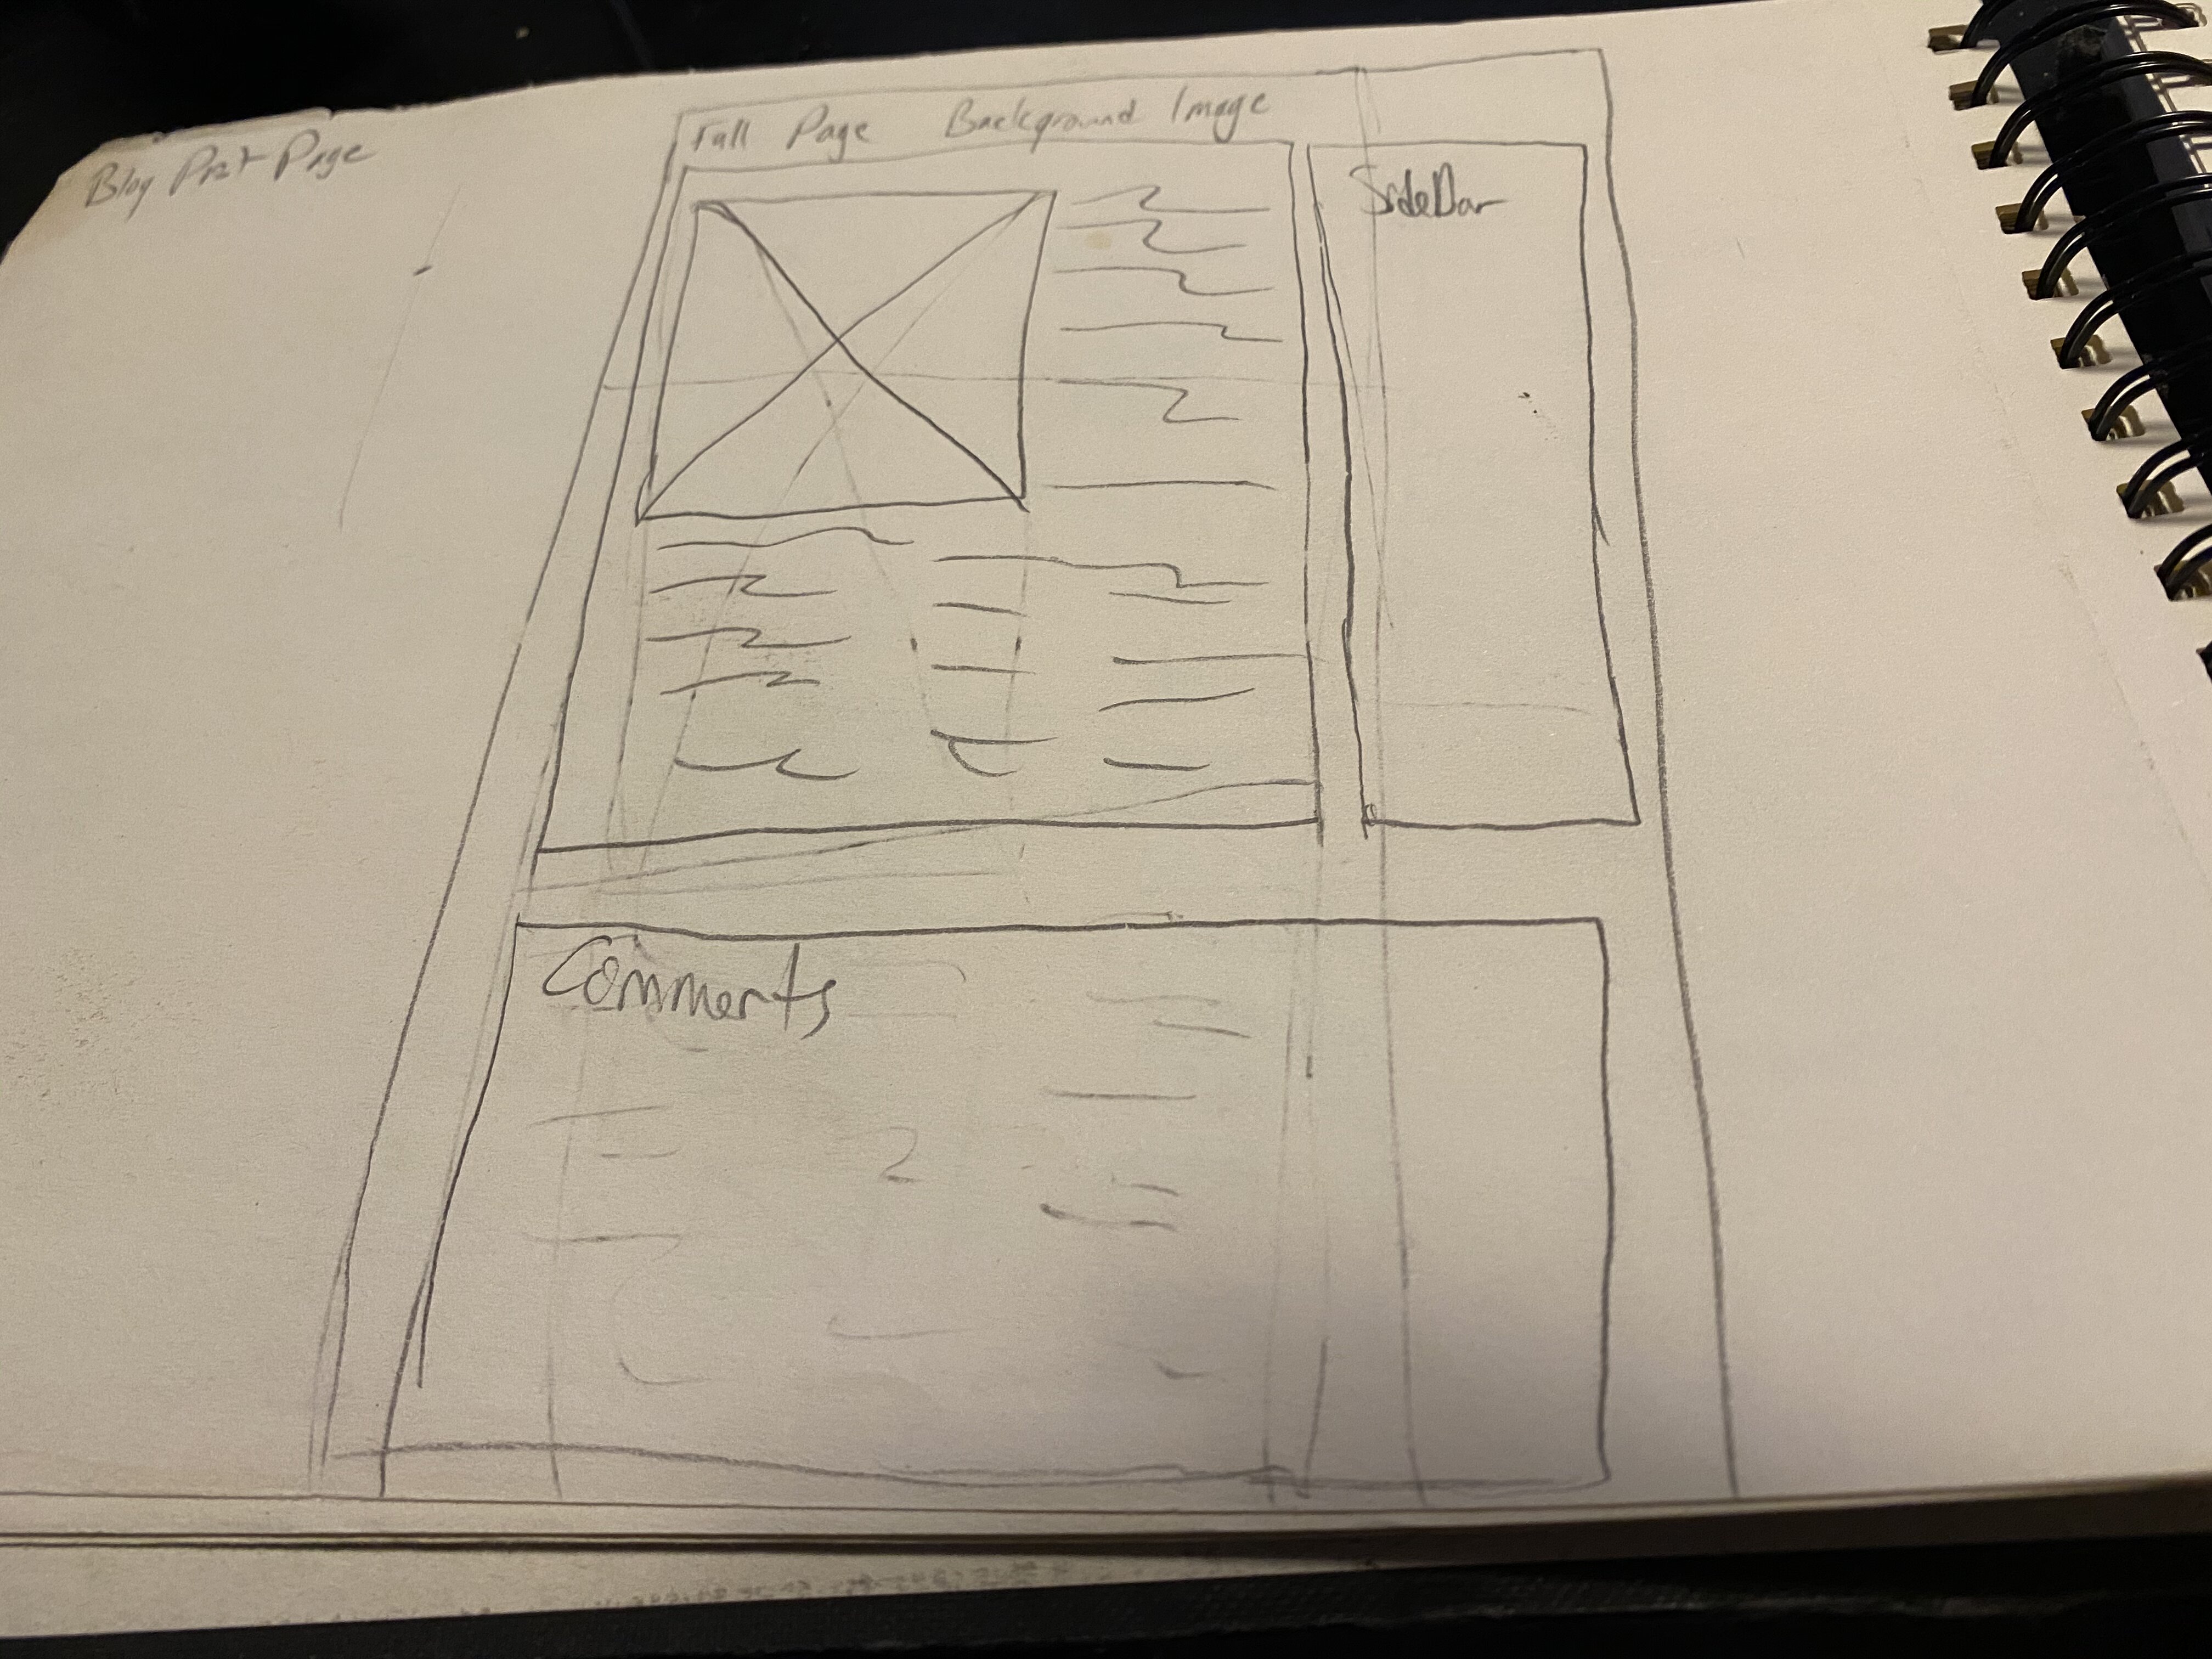 Blog Post Page
Full Page Background Image
SideBar
Comments